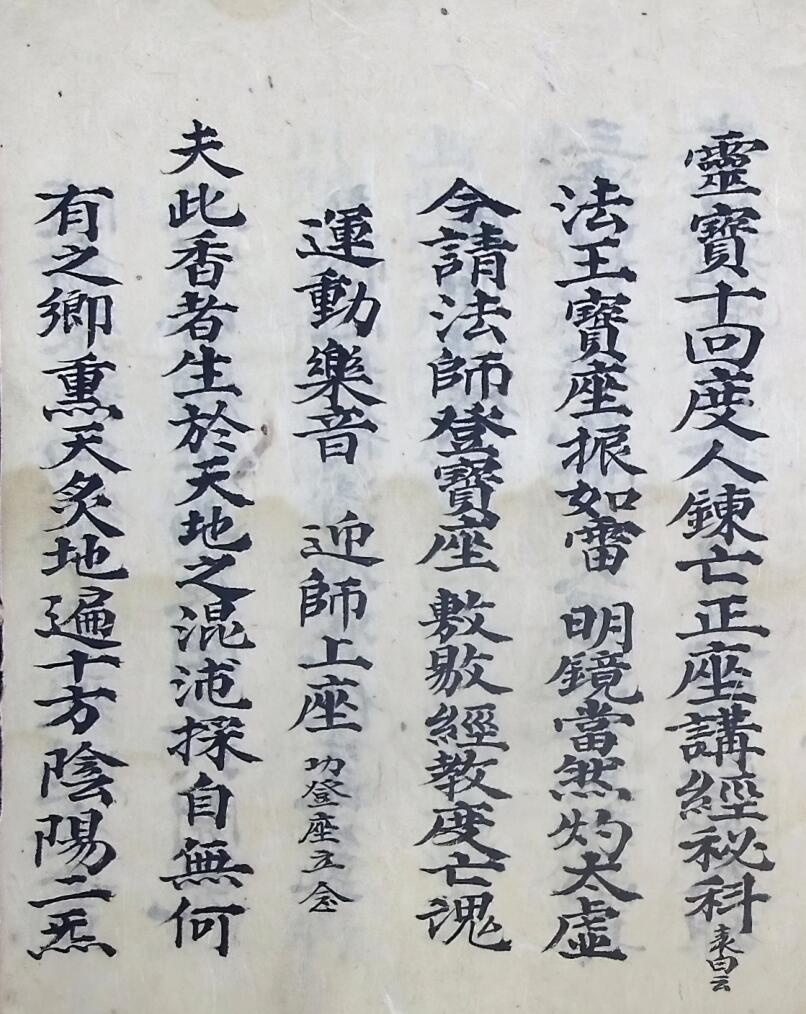 靈寶十回度人鍊亡正座講經秘科 表白云
法王寶座振如雷 明鏡當然灼太虛
今請法師登寶座 敷敭經教度亡魂
運動樂音 迎師上座 功登座立念
夫此香者生於天地之混浦採自無何
有之鄉熏天炙地遍十方陰陽二炁